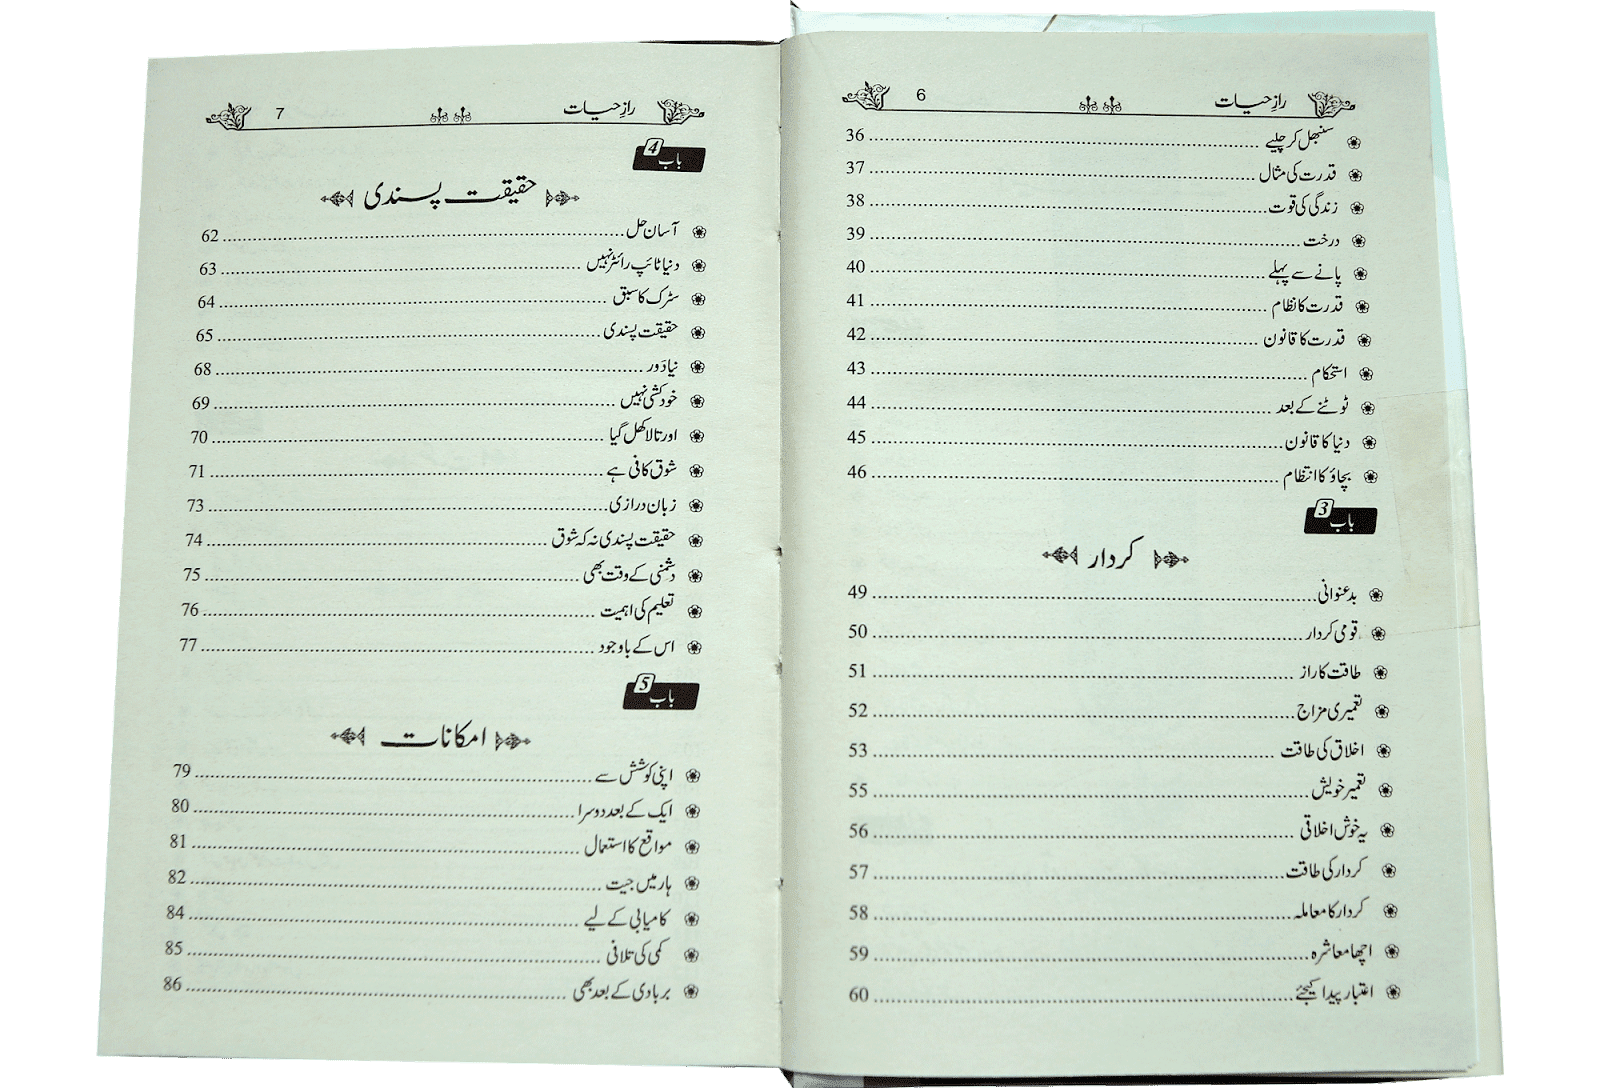 رازِ حیات 6
سنبھل کر چلیے ... 36
قدرت کی مثال ... 37
زندگی کی قوت ... 38
درخت ... 39
پانے سے پہلے ... 40
قدرت کا نظام ... 41
قدرت کا قانون ... 42
استحکام ... 43
ٹوٹنے کے بعد ... 44
دنیا کا قانون ... 45
بچاؤ کا انتظام ... 46
باب 3
کردار
بدعنوانی ... 49
قومی کردار ... 50
طاقت کا راز ... 51
تعمیری مزاج ... 52
اخلاق کی طاقت ... 53
تعمیر خویش ... 55
یہ خوش اخلاقی ... 56
کردار کی طاقت ... 57
کردار کا معاملہ ... 58
اچھا معاشرہ ... 59
اعتبار پیدا کیجئے ... 60
رازِ حیات 7
باب 4
حقیقت پسندی
آسان حل ... 62
دنیا ٹائپ رائٹر نہیں ... 63
سڑک کا سبق ... 64
حقیقت پسندی ... 65
نیا دَور ... 68
خودکشی نہیں ... 69
اور تالا کھل گیا ... 70
شوق کافی ہے ... 71
زبان درازی ... 73
حقیقت پسندی نہ کہ شوق ... 74
دشمنی کے وقت بھی ... 75
تعلیم کی اہمیت ... 76
اس کے باوجود ... 77
باب 5
امکانات
اپنی کوشش سے ... 79
ایک کے بعد دوسرا ... 80
مواقع کا استعمال ... 81
ہار میں جیت ... 82
کامیابی کے لیے ... 84
کمی کی تلافی ... 85
بربادی کے بعد بھی ... 86